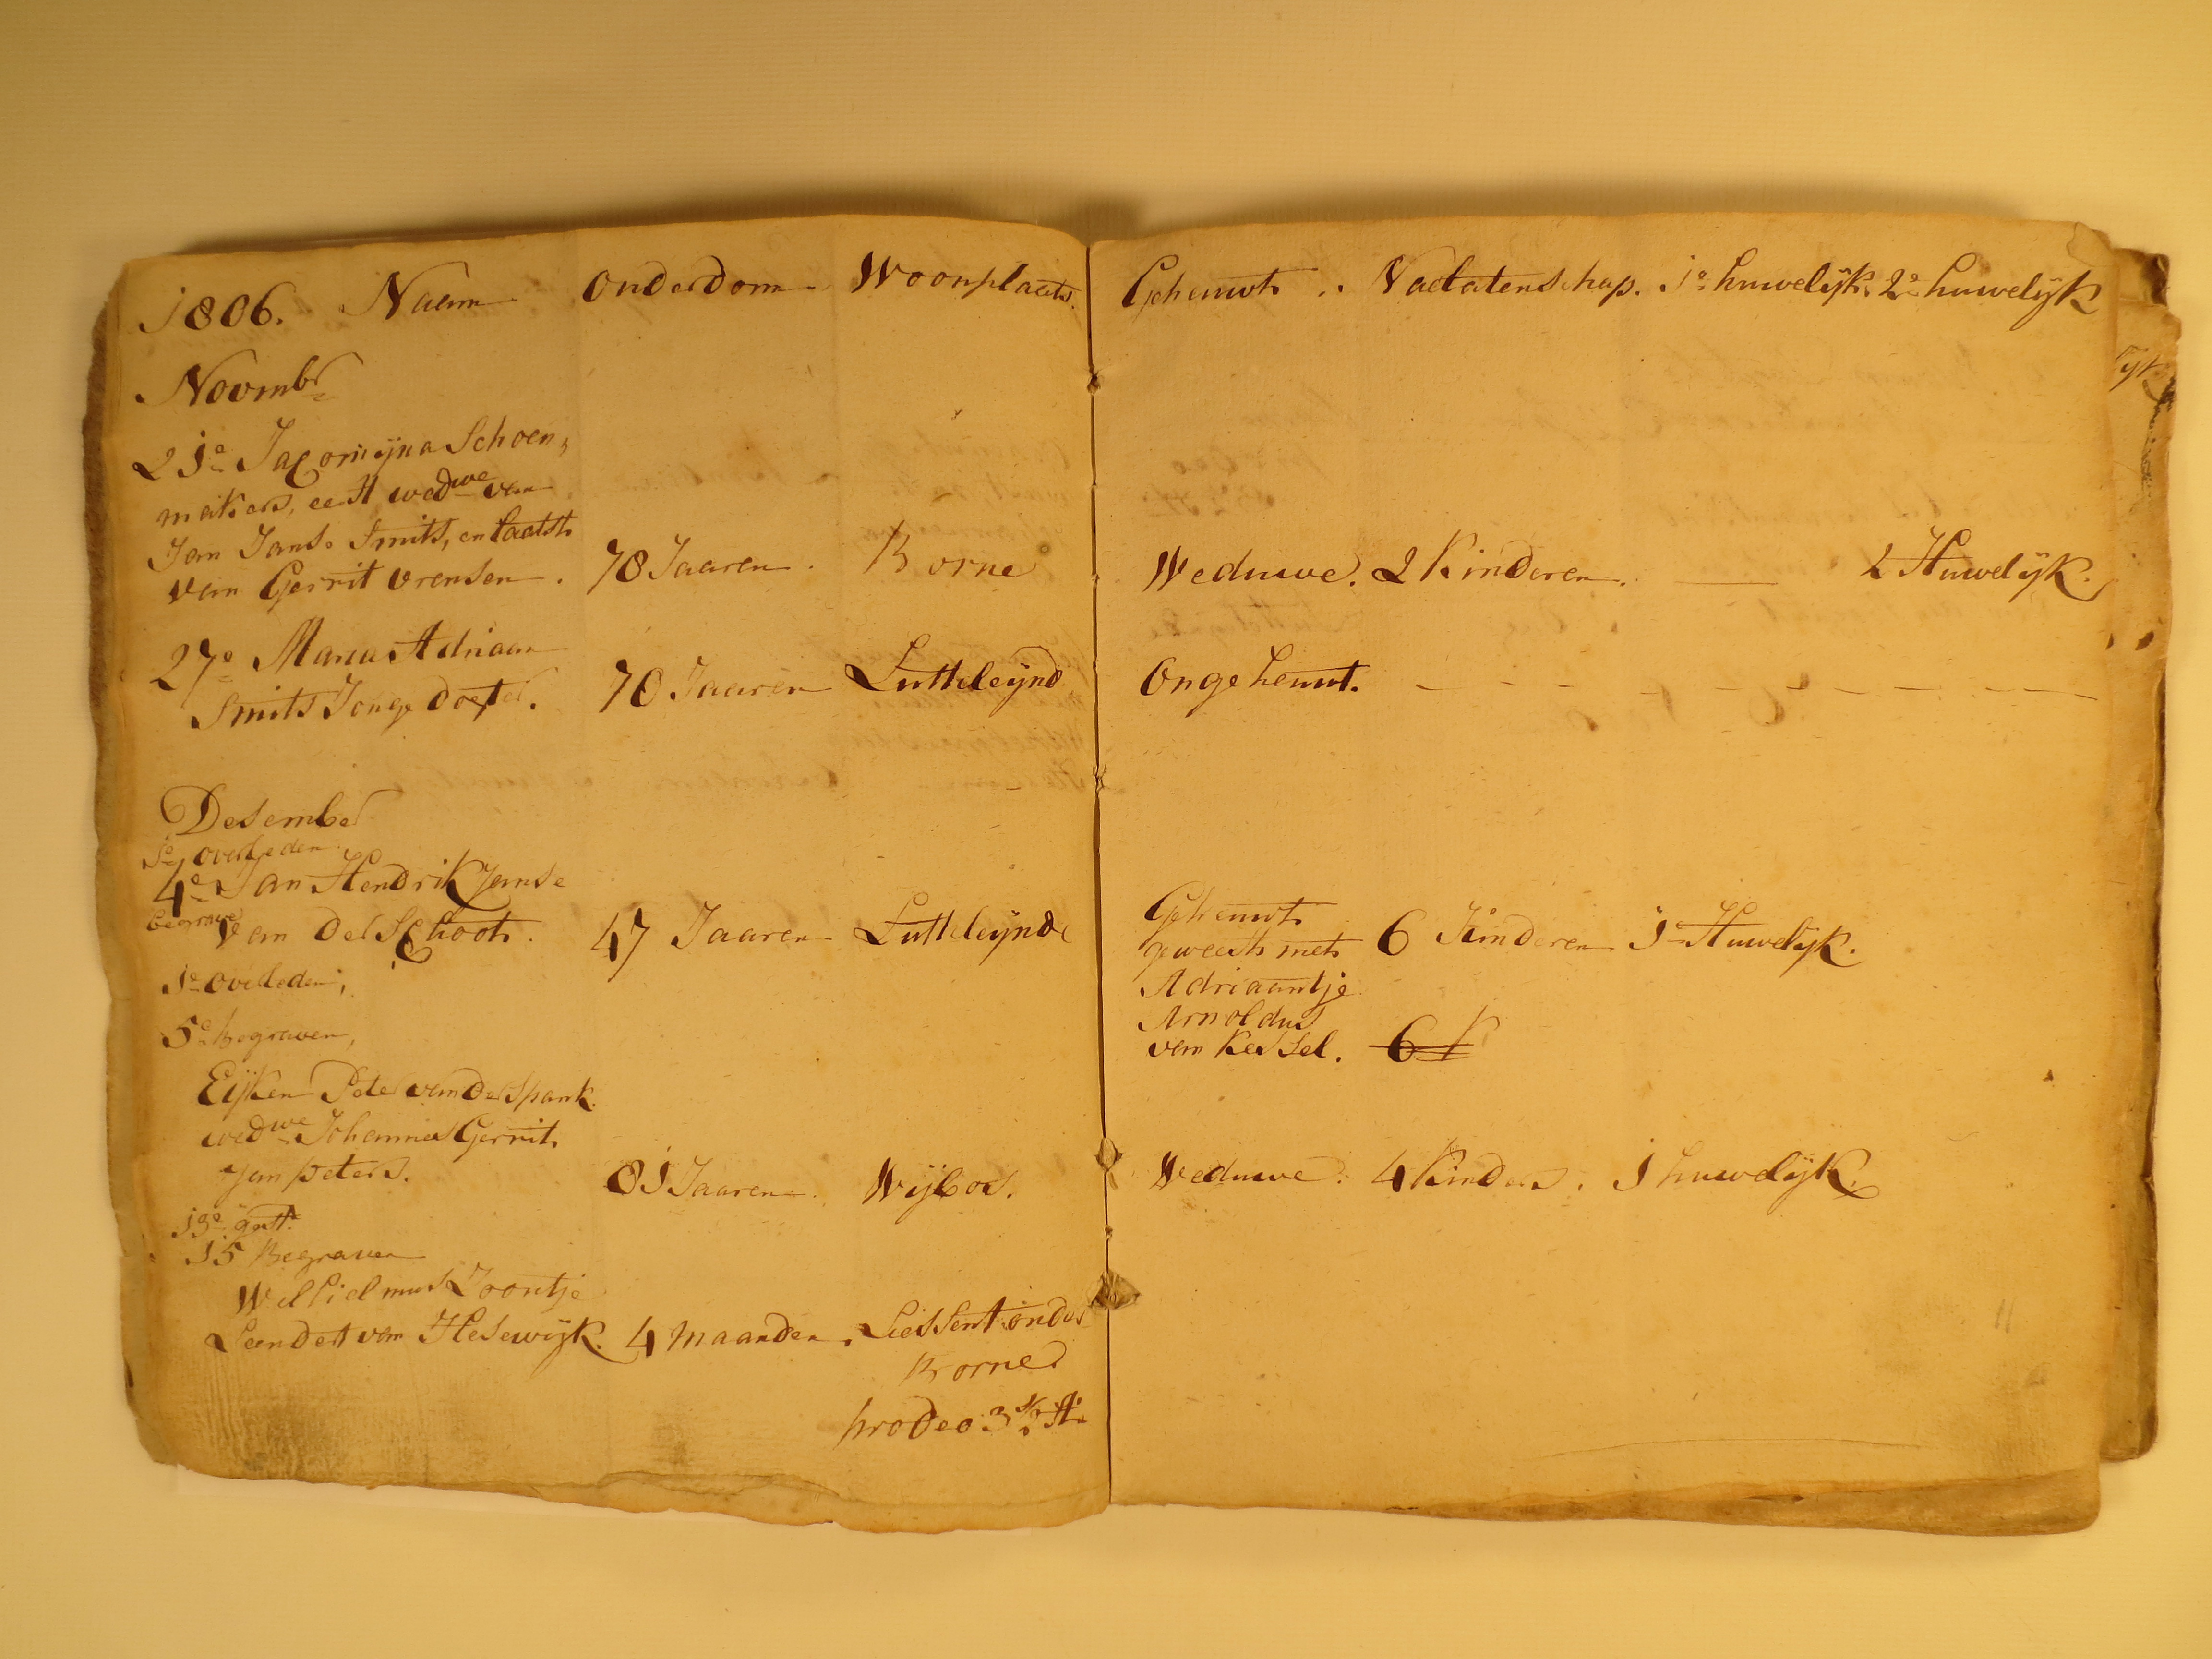 1806. Naam Onderdom Woonplaats. Geheuwt .. Naelatenschap. 1e huwelijk. 2e huwelijk
Novembr
21e Jacomijna Schoen,
makers, eerst wedwe van
Jan Janse Smits, en laatst
van Gerrit Vrensen. 78 Jaaren. Borne Weduwe. 2 Kinderen. — 2 Huwelijk.
27e Maria Adriaan
Smits Jonge Dogter. 70 Jaaren Lutteleijnd Ongeheuwt. - - - -
Desember
1e overleden
4e Jan Hendrik Janse
begrave van der Schoot. 47 Jaaren Lutteleijnde Geheuwt
geweest met 6 Kinderen 1e Huwelijk.
Adriaantje
Arnoldus
van Kessel. 6 K
1e overleden,
5e begraven,
Eijken Peter van der Spank.
wedwe Johannes Gerrit
Jan peters. 81 Jaaren. Wijbos. Weduwe. 4 Kinders. 1 huwelijk.
13e gest.
15 Begraven
Willielmus Zoontje
Leendert van Hesewijk. 4 maanden. Liessent onder
Borne
prodeo 3